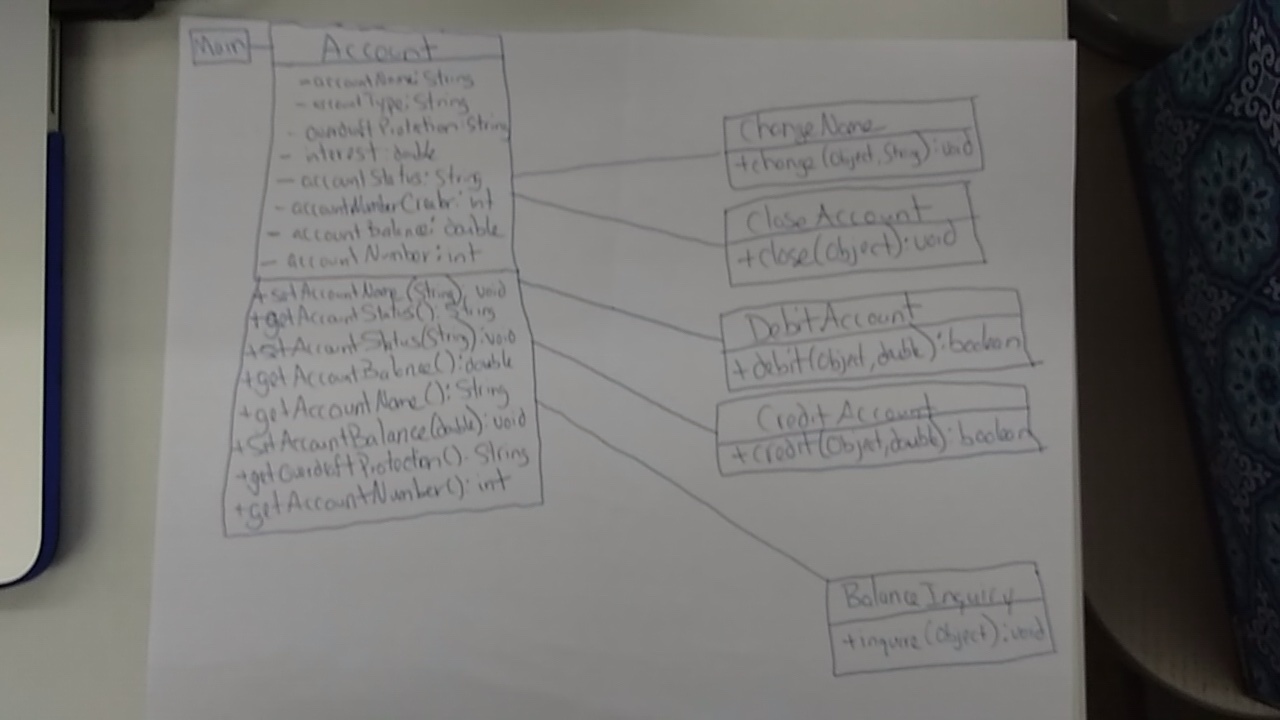 Main
Account
- accountName: String
- accountType: String
- overdraft Protetion: String
- interest: double
- accountStatus: String
- accountNumberCreatr: int
- account Balance: double
- account Number: int
+ setAccountName (String): void
+ getAccountStatus(): String
+ setAccountStatus(String): void
+ getAccountBalance(): double
+ getAccountName(): String
+ setAccountBalance(double): void
+ getOverdraftProtection(): String
+ getAccountNumber(): int
Change Name
+ change (Object, String): void
Close Account
+ close(Object): void
DebitAccount
+ debit(Object, double): boolean
Credit Account
+ credit(Object, double): boolean
Balance Inquiry
+ inquire (Object): void